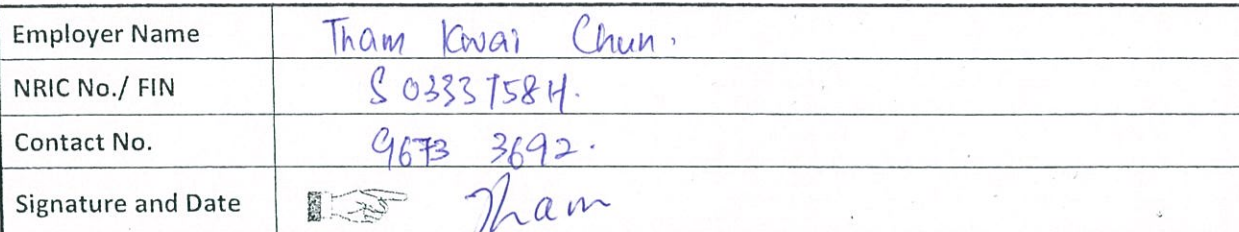 Employer Name Tham Kwai Chun.
NRIC No./ FIN S0333758H.
Contact No. 9673 3692.
Signature and Date Tham